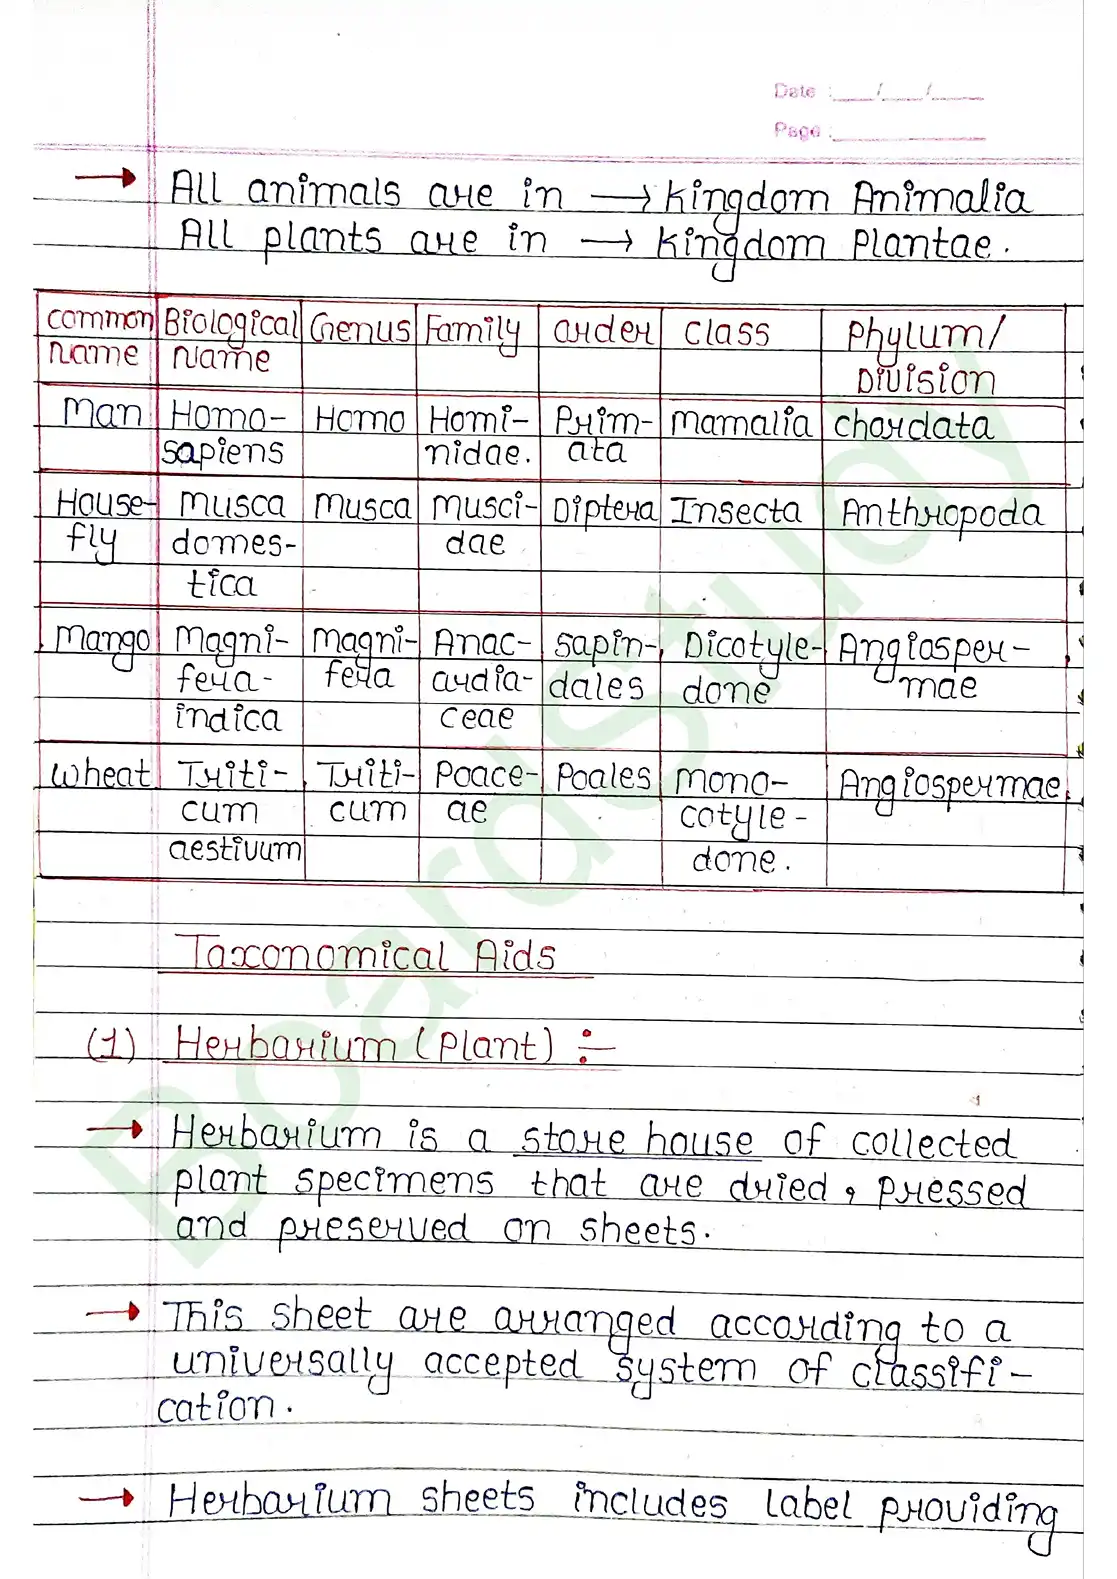 Date : ___/___/___
Page : ___
→ All animals are in → Kingdom Animalia
All plants are in → Kingdom Plantae.
common name | Biological name | Genus | Family | order | class | Phylum/ Division
Man | Homo- sapiens | Homo | Homi- nidae. | Prim- ata | mamalia | chordata
House- fly | musca domes- tica | musca | musci- dae | Diptera | Insecta | Anthropoda
Mango | Magni- fera- indica | magni- fera | Anac- ardia- ceae | sapin- dales | Dicotyle- done | Angiosper- mae
wheat | Triti- cum aestivum | Triti- cum | Poace- ae | Poales | mono- cotyle- done. | Angiospermae
Taxonomical Aids
(1) Herbarium (Plant) ÷
→ Herbarium is a store house of collected
plant specimens that are dried, pressed
and preserved on sheets.
→ This sheet are arranged according to a
universally accepted system of classifi-
cation.
→ Herbarium sheets includes label providing
BoardStudy